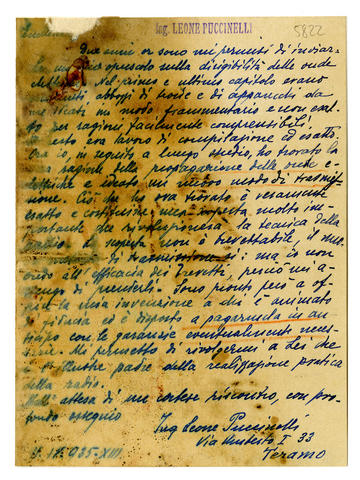 Ing. LEONE PUCCINELLI
5822
Eccellenza
Due anni or sono mi permisi di inviar-
opuscolo sulla dirigibilità delle onde
Nel primo e ultimo capitolo erano
abbozzi di teorie e di apparati da
in modo frammentario e non
per ragioni facilmente comprensibili.
era lavoro di compilazione ed esatto.
in seguito a lungo studio, ho trovato la
ragione della propagazione delle onde e-
e ideato un nuovo modo di trasmis-
sione. Ciò che ho ora trovato è veramente
esatto e costituisce una scoperta molto im-
portante che la tecnica della
radio. La scoperta non è brevettabile, il me-
di trasmissione sì: ma io non
credo all'efficacia dei brevetti, perciò mi a-
stengo di prenderli. Sono pronto però a of-
la mia invenzione a chi è animato
giustizia ed è disposto a pagarmela in an-
ticipo con le garanzie eventualmente neces-
sarie. Mi permetto di rivolgermi a Lei che
è l'illustre padre della realizzazione pratica
della radio.
Nell'attesa di un cortese riscontro, con pro-
fondo ossequio
Ing Leone Puccinelli
Via Umberto I 33
Teramo
935-XIII